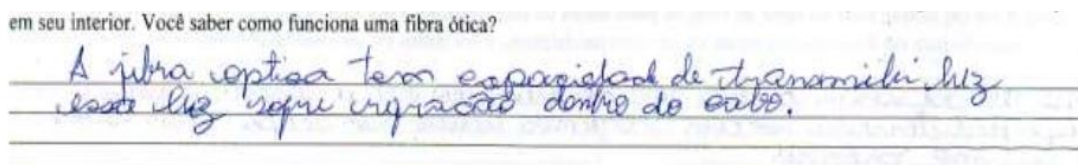 em seu interior. Você saber como funciona uma fibra ótica?
A fibra optica tem capacidad de transmitir luz
essa luz sofre irgração dentro do cabo.